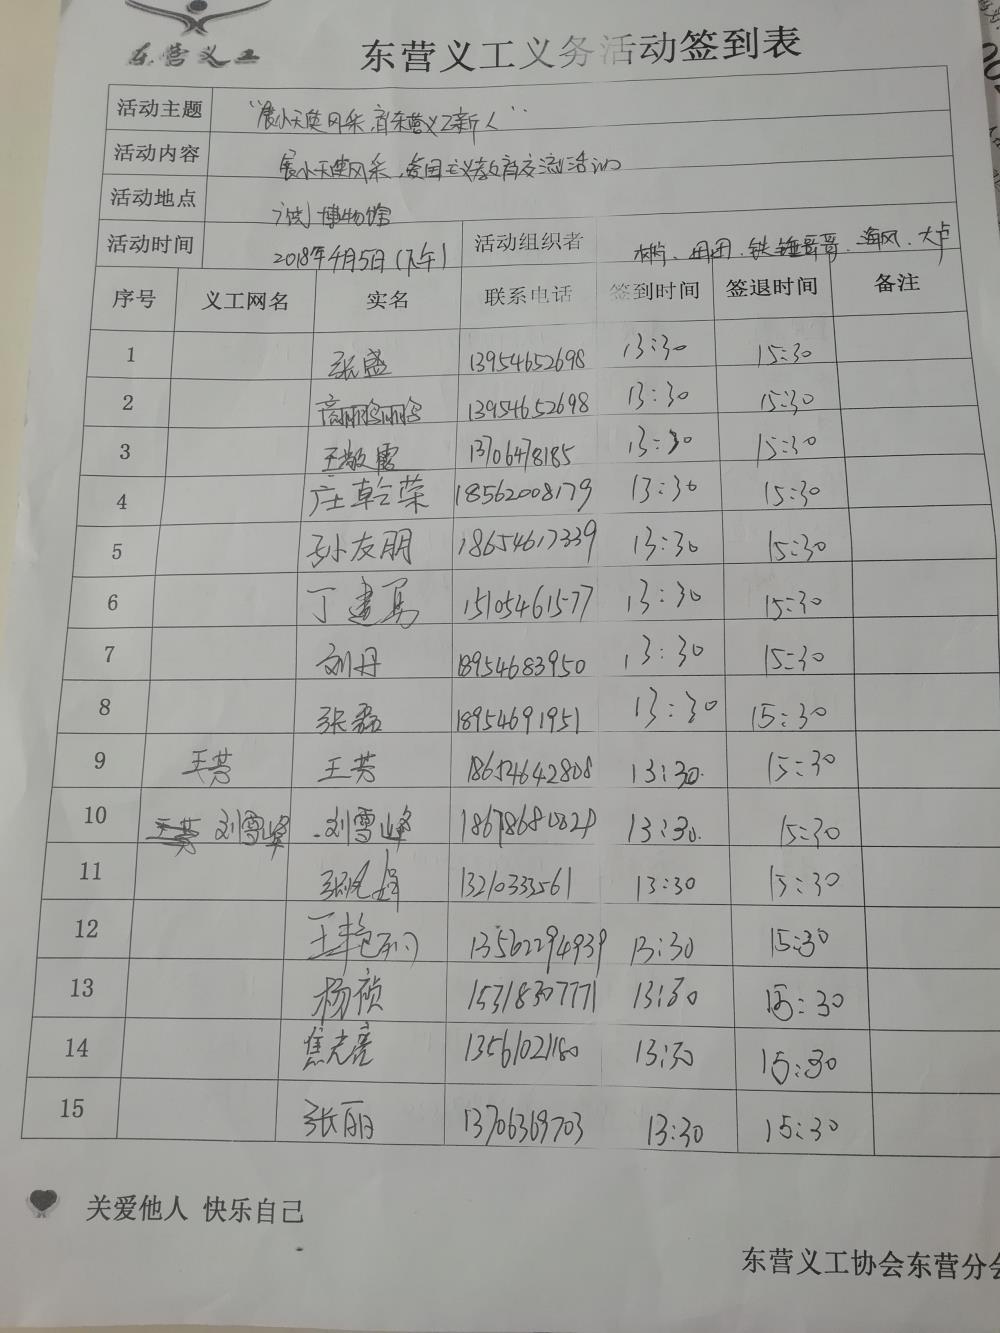 东营义工
东营义工义务活动签到表
活动主题 "展小天使风采,育东营义工新人"
活动内容 展小天使风采,爱国主义教育交流活动
活动地点 博物馆
活动时间 2018年4月5日(下午) 活动组织者 田田、铁锤哥哥、海风、大卢
序号 义工网名 实名 联系电话 签到时间 签退时间 备注
1 张盛 13954652698 13:30 15:30
2 13954652698 13:30 15:30
3 王敬雷 13706478185 13:30 15:30
4 庄乾荣 18562008179 13:30 15:30
5 孙友朋 18654617339 13:30 15:30
6 丁建勇 15105461577 13:30 15:30
7 刘丹 18954683950 13:30 15:30
8 张磊 18954691951 13:30 15:30
9 王芳 王芳 18654642808 13:30 15:30
10 王芳 刘雪峰 刘雪峰 13:30 15:30
11 13210333561 13:30 15:30
12 13562294939 13:30 15:30
13 杨祯 15318307771 13:30 15:30
14 焦志亮 13561021180 13:30 15:30
15 张丽 13706369703 13:30 15:30
关爱他人 快乐自己
东营义工协会东营分会